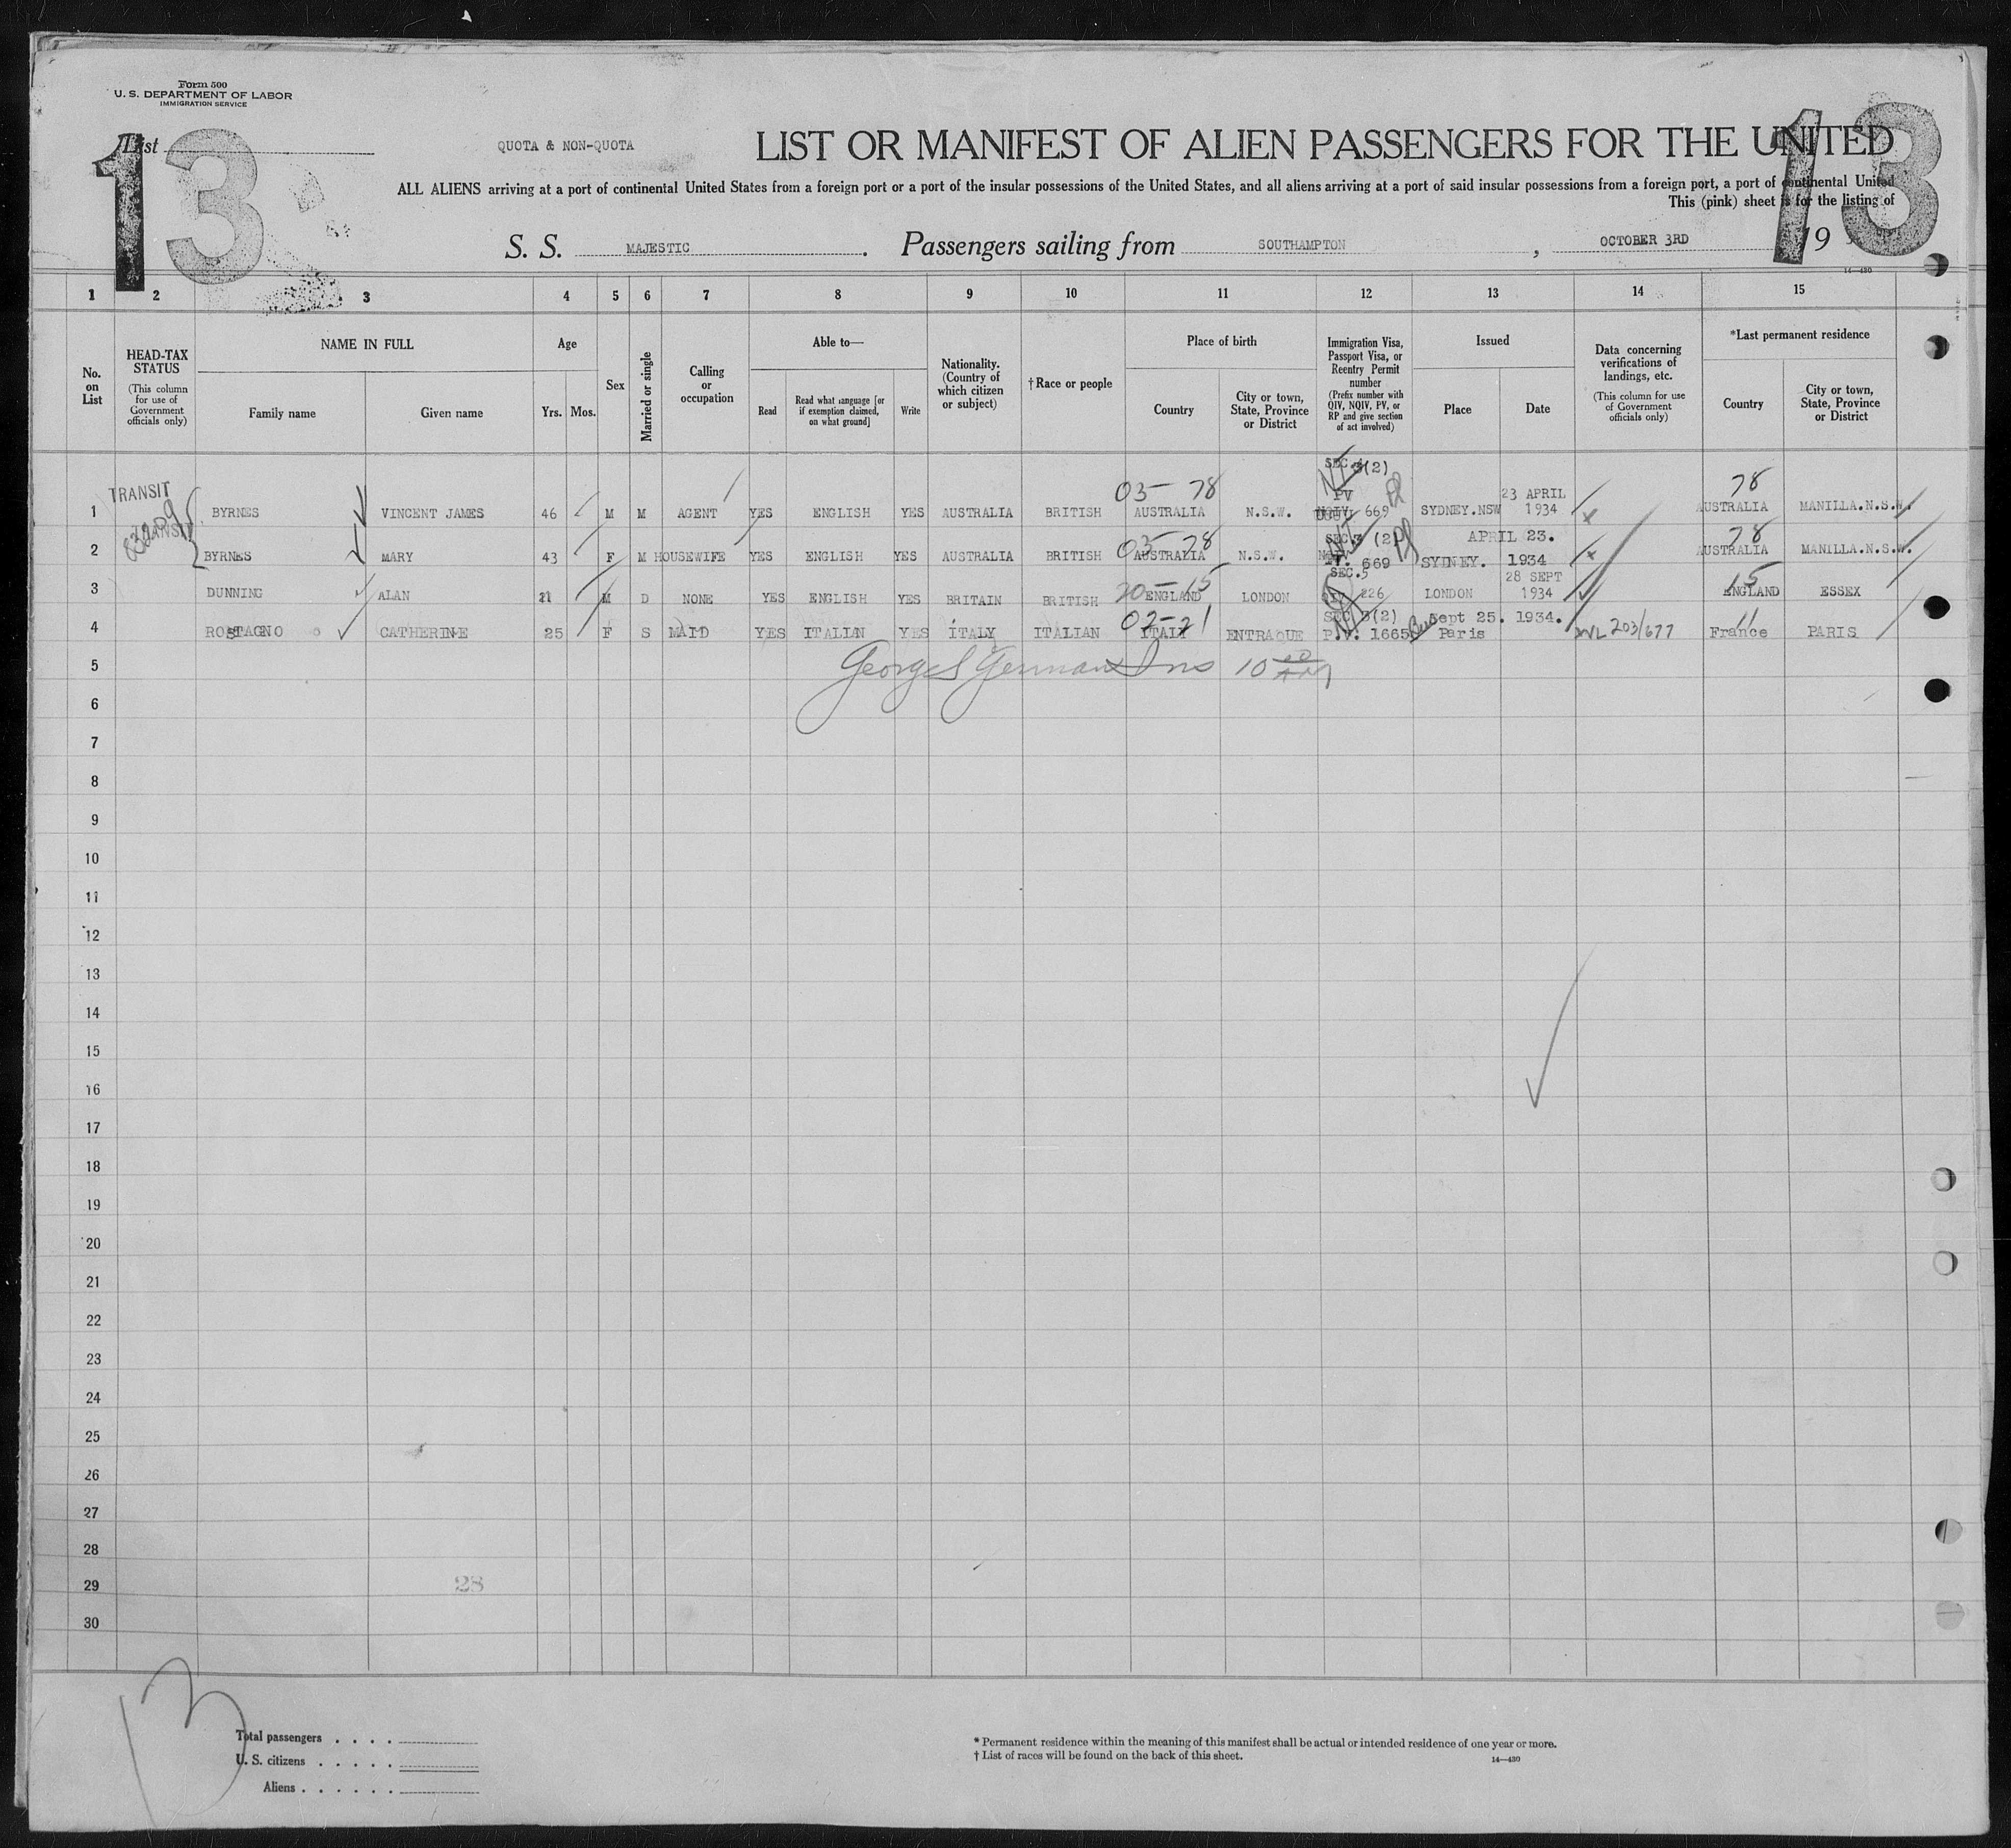 Form 500
U. S. DEPARTMENT OF LABOR
IMMIGRATION SERVICE
List
13
13
QUOTA & NON-QUOTA
LIST OR MANIFEST OF ALIEN PASSENGERS FOR THE UNITED
ALL ALIENS arriving at a port of continental United States from a foreign port or a port of the insular possessions of the United States, and all aliens arriving at a port of said insular possessions from a foreign port, a port of continental United
This (pink) sheet is for the listing of
S. S. MAJESTIC. Passengers sailing from SOUTHAMPTON, OCTOBER 3RD 19
14—430
1 2 3 4 5 6 7 8 9 10 11 12 13 14 15
No. on List
HEAD-TAX STATUS (This column for use of Government officials only)
NAME IN FULL
Family name
Given name
Age
Yrs. Mos.
Sex
Married or single
Calling or occupation
Able to—
Read
Read what language [or if exemption claimed, on what ground]
Write
Nationality. (Country of which citizen or subject)
†Race or people
Place of birth
Country
City or town, State, Province or District
Immigration Visa, Passport Visa, or Reentry Permit number (Prefix number with QIV, NQIV, PV, or RP and give section of act involved)
Issued
Place
Date
Data concerning verifications of landings, etc. (This column for use of Government officials only)
*Last permanent residence
Country
City or town, State, Province or District
SEC. 3(2)
TRANSIT 03— 78 PV 23 APRIL 78
1 BYRNES VINCENT JAMES 46 M M AGENT YES ENGLISH YES AUSTRALIA BRITISH AUSTRALIA N.S.W. 669 SYDNEY.NSW 1934 AUSTRALIA MANILLA.N.S.W.
TRANSIT 03—78 SEC.3 (2) APRIL 23. 78
2 BYRNES MARY 43 F M HOUSEWIFE YES ENGLISH YES AUSTRALIA BRITISH AUSTRALIA N.S.W. 669 SYDNEY. 1934 AUSTRALIA MANILLA.N.S.W.
20—15 SEC.5 28 SEPT 15
3 DUNNING ALAN 21 M D NONE YES ENGLISH YES BRITAIN BRITISH ENGLAND LONDON QIV 226 LONDON 1934 ENGLAND ESSEX
02—21 SEC 3(2) Sept 25. 1934. 11
4 ROSTAGNO CATHERINE 25 F S MAID YES ITALIAN YES ITALY ITALIAN ITALY ENTRAQUE P.V. 1665 Paris 203/677 France PARIS
5 George S German Ins 10
6
7
8
9
10
11
12
13
14
15
16
17
18
19
20
21
22
23
24
25
26
27
28
29 28
30
13
Total passengers . . . .
U. S. citizens . . . . .
Aliens . . . . . .
* Permanent residence within the meaning of this manifest shall be actual or intended residence of one year or more.
† List of races will be found on the back of this sheet.
14—430